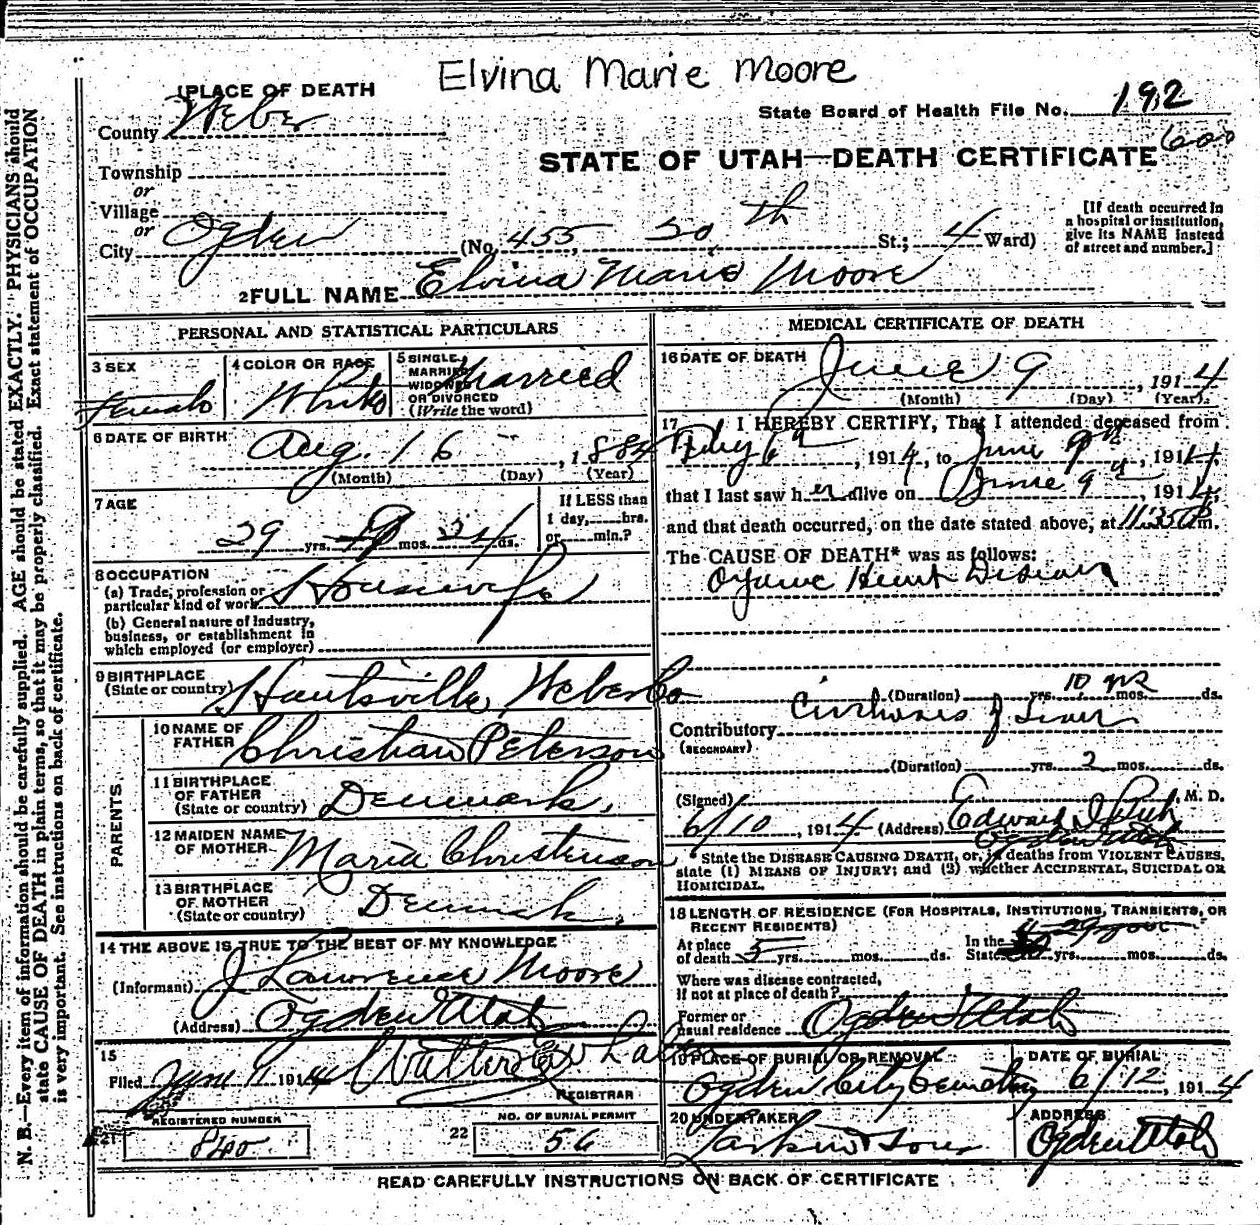 Elvina Marie Moore
1 PLACE OF DEATH
County Weber
State Board of Health File No. 192
600
STATE OF UTAH—DEATH CERTIFICATE
Township
or
Village
or
City Ogden (No. 455 30th St.; 4 Ward)
[If death occurred in
a hospital or institution,
give its NAME instead
of street and number.]
2 FULL NAME Elvina Marie Moore
PERSONAL AND STATISTICAL PARTICULARS
3 SEX
Female
4 COLOR OR RACE
White
5 SINGLE,
MARRIED,
WIDOWED,
OR DIVORCED
(Write the word)
Married
6 DATE OF BIRTH
Aug. 16, 1884
(Month) (Day) (Year)
7 AGE
29 yrs. 9 mos. 24 ds.
If LESS than
1 day, hrs.
or min.?
8 OCCUPATION
(a) Trade, profession or
particular kind of work Housewife
(b) General nature of Industry,
business, or establishment in
which employed (or employer)
9 BIRTHPLACE
(State or country) Huntsville, Weber Co
PARENTS
10 NAME OF
FATHER Christian Peterson
11 BIRTHPLACE
OF FATHER
(State or country) Denmark,
12 MAIDEN NAME
OF MOTHER Maria Christenson
13 BIRTHPLACE
OF MOTHER
(State or country) Denmark,
14 THE ABOVE IS TRUE TO THE BEST OF MY KNOWLEDGE
(Informant) J Lawrence Moore
(Address) Ogden Utah
15
Filed June 11 1914
REGISTRAR
REGISTERED NUMBER
21 840
NO. OF BURIAL PERMIT
22 56
MEDICAL CERTIFICATE OF DEATH
16 DATE OF DEATH
June 9, 1914
(Month) (Day) (Year)
17 I HEREBY CERTIFY, That I attended deceased from
Feby 6th, 1914, to June 9th, 1914,
that I last saw her alive on June 9th, 1914,
and that death occurred, on the date stated above, at 11:35 P m.
The CAUSE OF DEATH* was as follows:
Organic Heart Disease
(Duration) yrs. 10 mos. ds.
Contributory Cirrhosis of Liver
(SECONDARY)
(Duration) yrs. 2 mos. ds.
(Signed) Edward I Rich, M. D.
6/10, 1914 (Address) Ogden Utah
* State the DISEASE CAUSING DEATH, or, in deaths from VIOLENT CAUSES,
state (1) MEANS OF INJURY; and (2) whether ACCIDENTAL, SUICIDAL OR
HOMICIDAL.
18 LENGTH OF RESIDENCE (FOR HOSPITALS, INSTITUTIONS, TRANSIENTS, OR
RECENT RESIDENTS)
At place
of death 5 yrs. mos. ds.
In the
State yrs. mos. ds.
Where was disease contracted,
if not at place of death?
Former or
usual residence Ogden Utah
19 PLACE OF BURIAL OR REMOVAL
Ogden City Cemetery
DATE OF BURIAL
6/12, 1914
20 UNDERTAKER
Larkin & Sons
ADDRESS
Ogden Utah
READ CAREFULLY INSTRUCTIONS ON BACK OF CERTIFICATE
N. B.—Every item of information should be carefully supplied. AGE should be stated EXACTLY. PHYSICIANS should
state CAUSE OF DEATH in plain terms, so that it may be properly classified. Exact statement of OCCUPATION
is very important. See instructions on back of certificate.